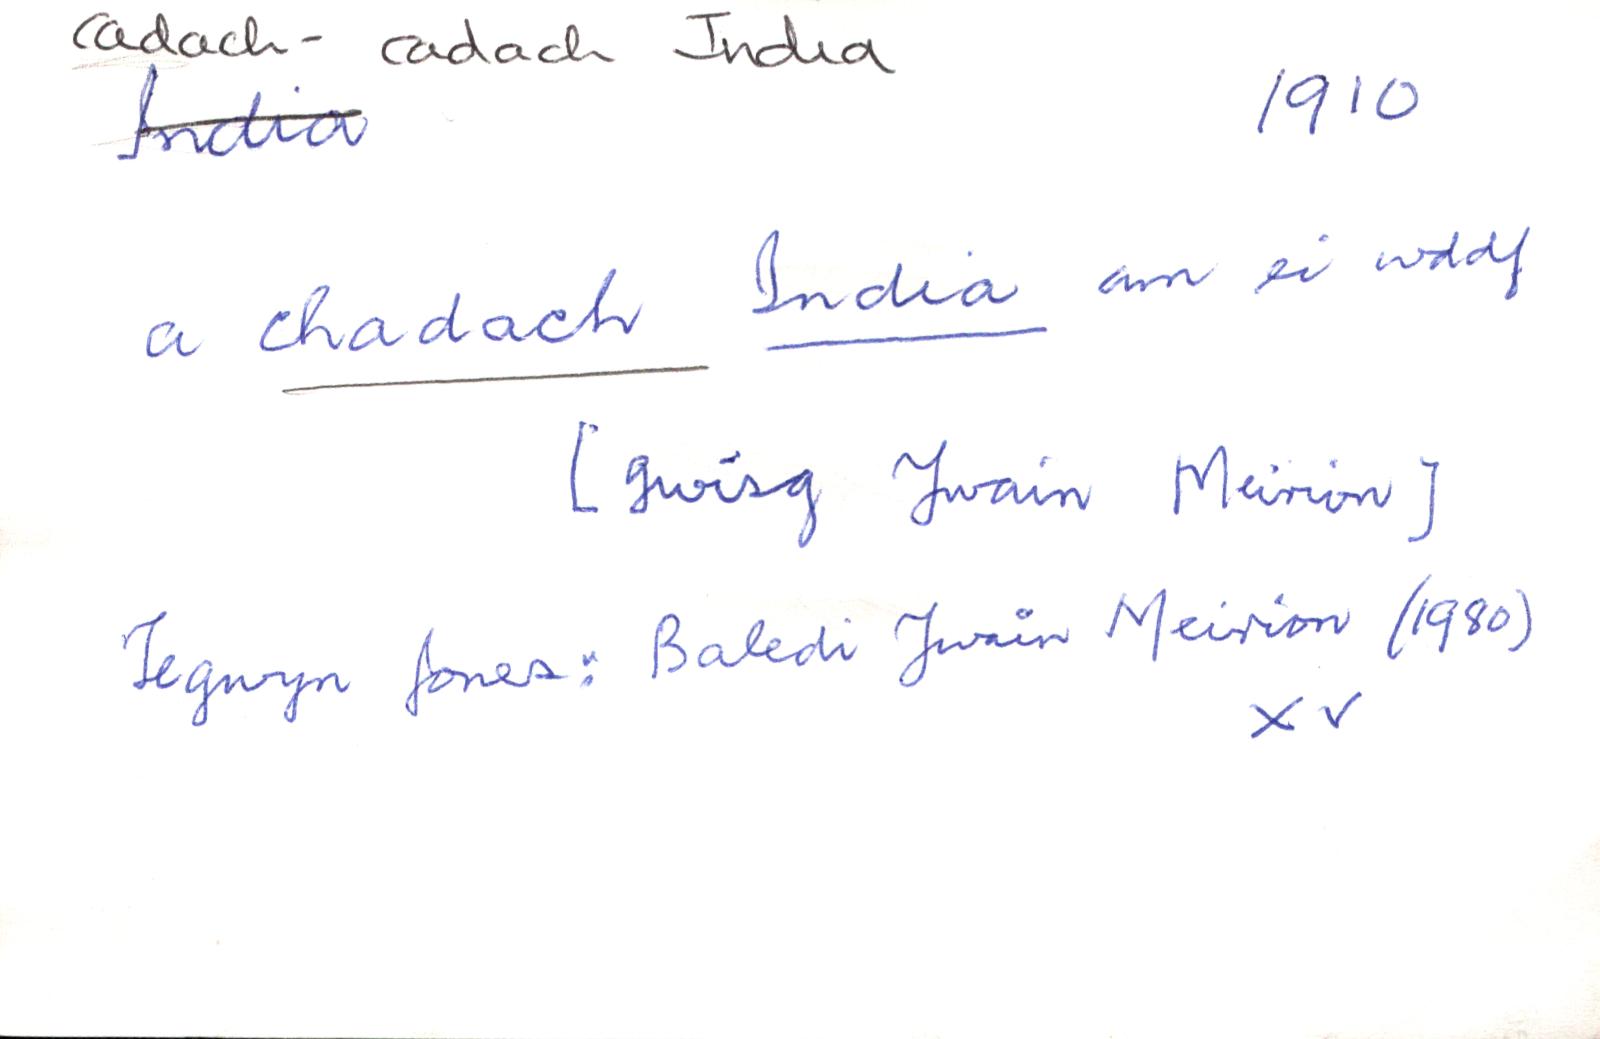 cadach - cadach India
India
1910
a chadach India am ei wddf
[gwisg Ywain Meirion]
Tegwyn Jones: Baledi Ywain Meirion (1980)
x v